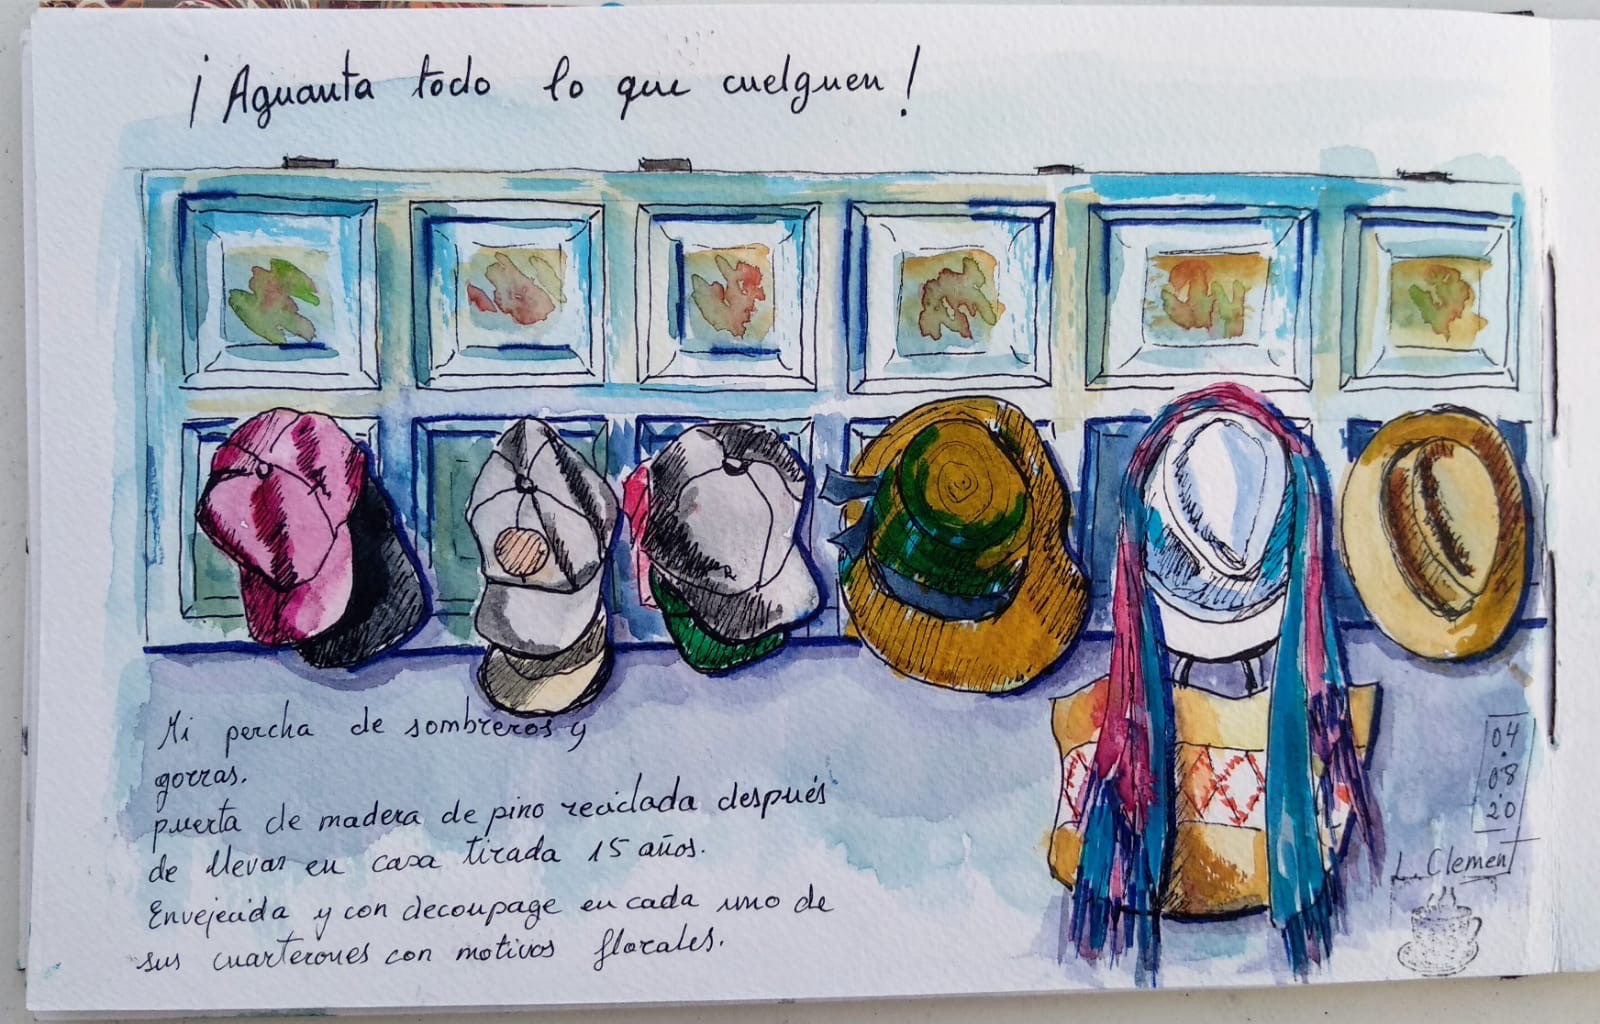 ¡Aguanta todo lo que cuelguen!
Mi percha de sombreros y
gorras.
puerta de madera de pino reciclada después
de llevar en casa tirada 15 años.
Envejecida y con decoupage en cada uno de
sus cuarterones con motivos florales.
04
08
20
L. Clement